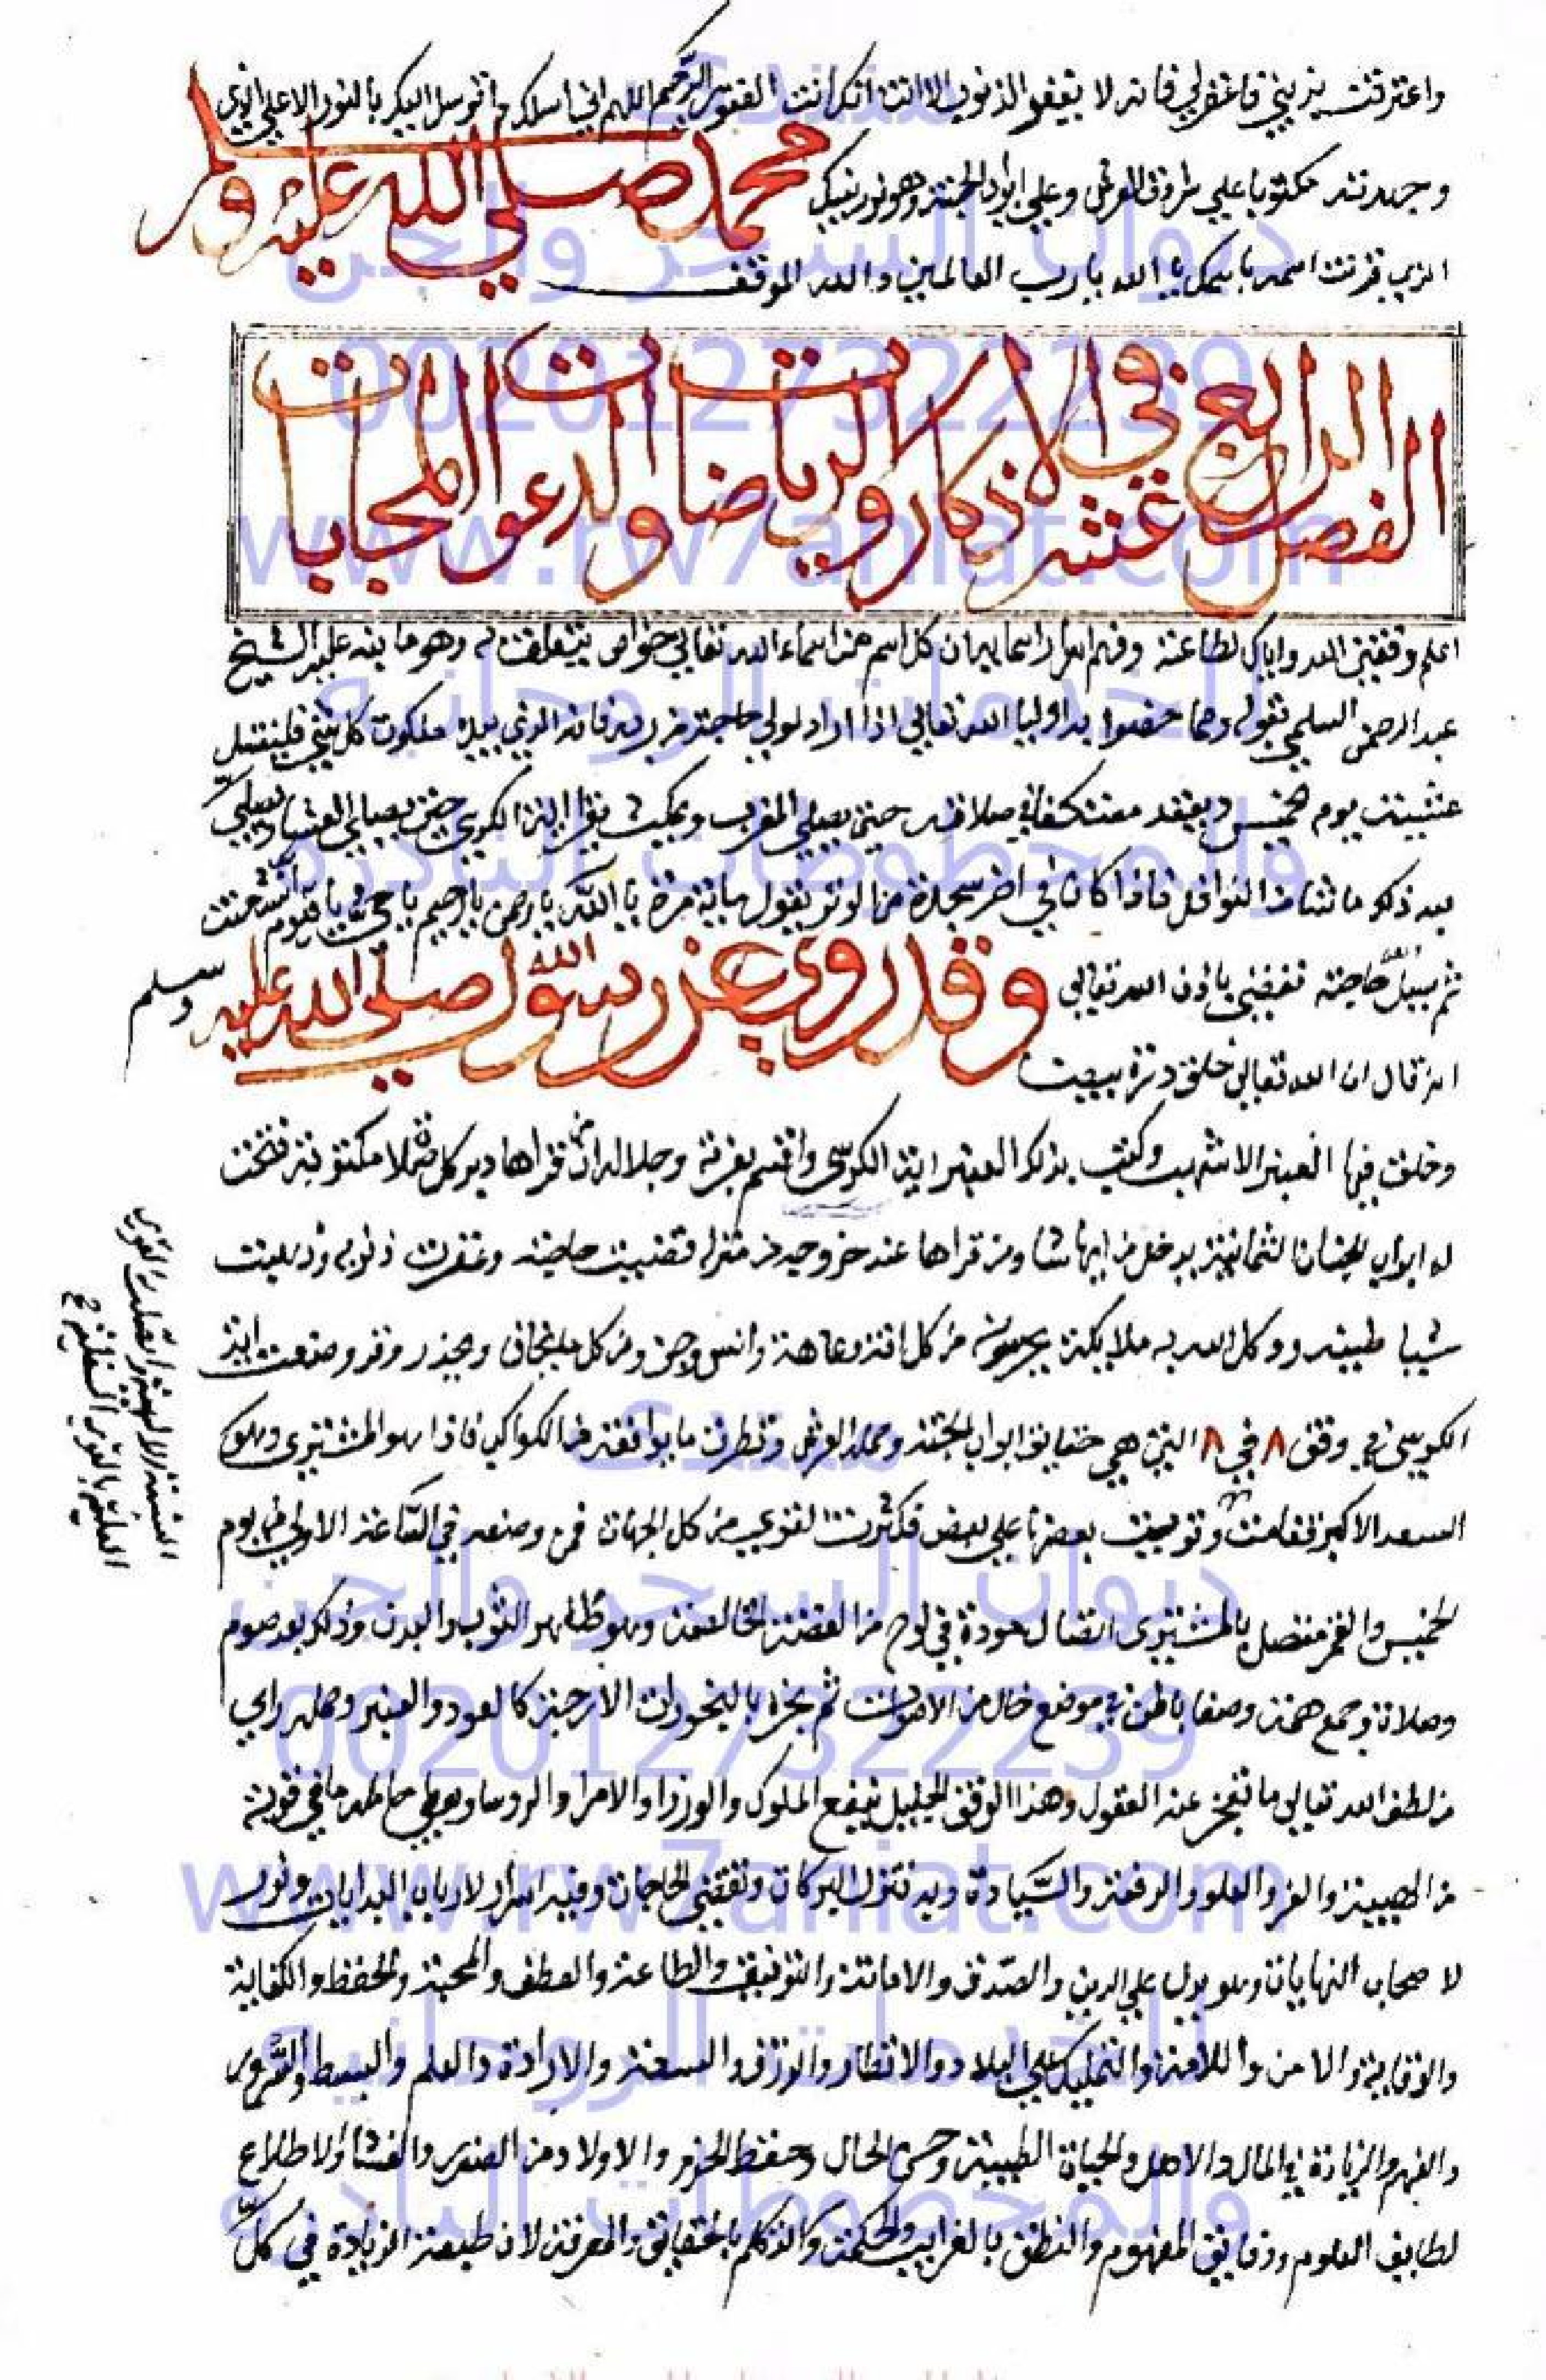 واعترفت بذنبي فاغفر لي فانه لا يغفر الذنوب الا انت انك انت الغفور الرحيم اللهم اني اسلك واتوسل اليك بالنور الاعلى الذي
وجدته مكتوبا على سرادق العرش وعلى ابواب الجنة وهو نور نبيك محمد صلي الله عليه وسلم
الذي قرنت اسمه باسمك يا الله يا رب العالمين والله الموفق
الفصل الرابع عشر في الاذكار والرياضات والدعوات المجابات
اعلم وفقني الله واياك لطاعته وفهم اسرار اسمايه ان كل اسم من اسماء الله تعالي خواص تتعلق به وهو ما نبه عليه الشيخ
عبد الرحمن السلمي بقوله ومما خصوا به اوليا الله تعالي اذا اراد لولي حاجة من ربه فانه الذي بيده ملكوت كل شي فليغتسل
عشيت يوم خميس ويقعد معتكفا في صلاته حتي يصلي المغرب ويمكث يقرا اية الكرسي حتي يصلي العشا ويصلي
بعد ذلك ما شا من النوافل فاذا كان في اخر سجدة من الوتر يقول ماية مرة يا الله يا رحمن يا رحيم يا حي يا قيوم
ثم يسل الله حاجته تقضي باذن الله تعالي وقد روي عن رسول الله صلي الله عليه وسلم
انه قال ان الله تعالي خلق درة بيضت
وخلق فيها العنبر الاشهب وكتب بذلك العنبر اية الكرسي واقسم بعزته وجلاله ان من قراها دبر كل صلاة مكتوبة فتحت
له ابواب الجنان الثمانية يدخل من ايها شا ومن قراها عند خروجه من منزله قضيت حاجته وغفرت ذنوبه
شيا طينه ووكل الله به ملايكة يحرسونه من كل افة وعاهة وانس وجن ومن كل ما يخاف ويحذر وقد وضعت اية
الكرسي في وفق ٨ في ٨ التي هي حقايق ابواب الجنة وحملة العرش ونظرت ما يوافقه من الكواكب فاذا هو المشتري وهو
السعد الاكبر بعضها علي بعض فكثرت القوي من كل الجهات فمن وضعه في الساعة الاولي من يوم
الخميس والقمر متصل بالمشتري اتصال مودة في لوح من الفضة الخالصة وهو طاهر الثوب والبدن وذلك بعد صوم
وصلاة وجمع همة وصفا باطن في موضع خال من الاصوات ثم بخره بالبخورات الارجية كالعود والعنبر وحمله راي
من لطف الله تعالي ما تعجز عنه العقول وهذا الوفق الجليل ينفع الملوك والوزرا والامرا والروسا ويعطي حامله ما في قوته
من الهيبة والعز والعلو والرفعة والسيادة وبه تتنزل البركات وتقضي الحاجات وفيه اسرار لارباب البدايات ونور
لا صحاب النهايات وهو يدل علي الدين والصدق والامانة والتوفيق والطاعة والعطف والمحبة والحفظ والكفاية
والوقاية والامن والتمليك علي البلاد والاقطار والرزق والسعة والارادة والعلم والبسط والسرور
والفهم والزيادة في المال والاهل والحياة الطيبة وحسن الحال وحفظ الحرم والاولاد من الصغر والنشا والاطلاع
لطايف العلوم ودقايق المفهوم والنطق بالغرايب والحكمة والتكلم بالحقايق والمعرفة لان طبيعة الزيادة في كل
منتدى
ديوان السحر والجن
00201273222239
www.rw7aniat.com
للخدمات الروحانيه
والمخطوطات النادره
منتدى
ديوان السحر والجن
00201273222239
www.rw7aniat.com
للخدمات الروحانيه
والمخطوطات النادره